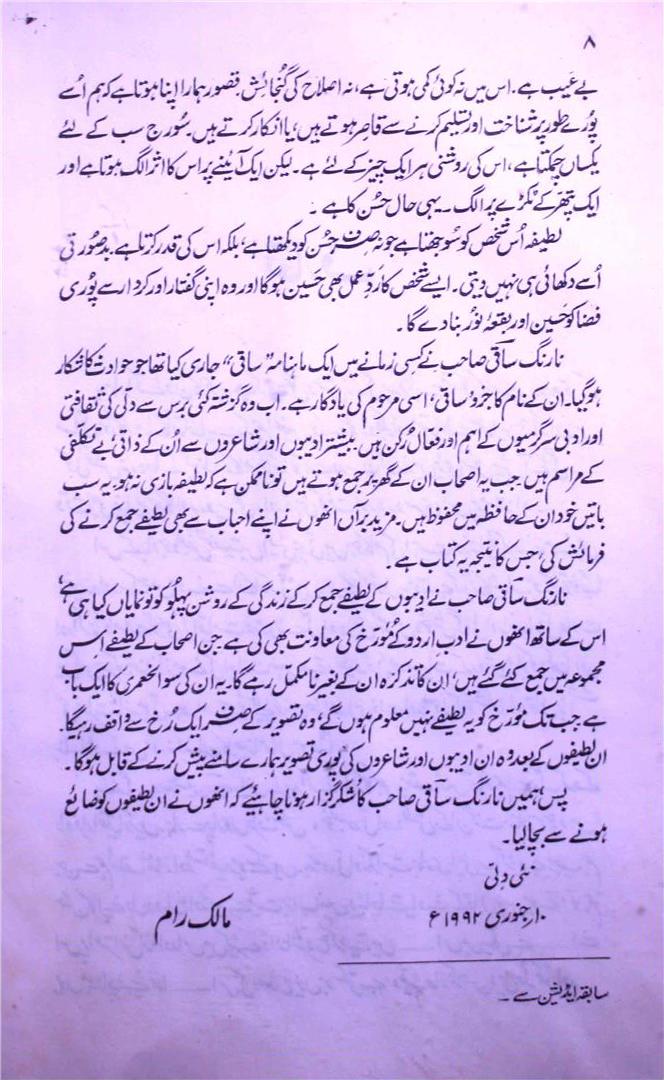 ۸
بے عیب ہے۔ اس میں نہ کوئی کمی ہوتی ہے، نہ اصلاح کی گنجائش قصور ہمارا اپنا ہوتا ہے کہ ہم اُسے
پورے طور پر شناخت اور تسلیم کرنے سے قاصر ہوتے ہیں، یا انکار کرتے ہیں۔ سُورج سب کے لئے
یکساں چمکتا ہے، اس کی روشنی ہر ایک چیز کے لئے ہے۔ لیکن ایک آئینے پر اس کا اثر الگ ہوتا ہے اور
ایک پتھر کے ٹکڑے پر الگ۔ یہی حال حُسن کا ہے۔
لطیفہ اُس شخص کو سُوجھتا ہے جو نہ صرف حُسن کو دیکھتا ہے، بلکہ اس کی قدر کرتا ہے۔ بدصُورتی
اُسے دکھائی ہی نہیں دیتی۔ ایسے شخص کا ردِّ عمل بھی حَسین ہوگا اور وہ اپنی گفتار اور کردار سے پُوری
فضا کو حَسین اور بقعۂ نُور بنا دے گا۔
نارنگ ساقی صاحب نے کسی زمانے میں ایک ماہنامہ "ساقی" جاری کیا تھا جو حوادث کا شکار
ہوگیا۔ ان کے نام کا جزو ساقی، اسی مرحوم کی یادگار ہے۔ اب وہ گزشتہ کئی برس سے دلی کی ثقافتی
اور ادبی سرگرمیوں کے اہم اور فعال رُکن ہیں۔ بیشتر ادیبوں اور شاعروں سے اُن کے ذاتی بے تکلفی
کے مراسم ہیں۔ جب یہ اصحاب ان کے گھر پر جمع ہوتے ہیں تو ناممکن ہے کہ لطیفہ بازی نہ ہو۔ یہ سب
باتیں خود ان کے حافظہ میں محفوظ ہیں۔ مزید برآں انھوں نے اپنے احباب سے بھی لطیفے جمع کرنے کی
فرمائش کی، جس کا نتیجہ یہ کتاب ہے۔
نارنگ ساقی صاحب نے ادیبوں کے لطیفے جمع کر کے زندگی کے روشن پہلُو کو تو نمایاں کیا ہی ہے،
اس کے ساتھ انھوں نے ادب اردو کے مُورّخ کی معاونت بھی کی ہے جن اصحاب کے لطیفے اِس
مجموعہ میں جمع کئے گئے ہیں، ان کا تذکرہ ان کے بغیر نامکمّل رہے گا۔ یہ ان کی سوانحعمری کا ایک باب
ہے جب تک مُورّخ کو یہ لطیفے نہیں معلوم ہوں گے، وہ تصویر کے صرف ایک رُخ سے واقف رہیگا۔
ان لطیفوں کے بعد وہ ان ادیبوں اور شاعروں کی پُوری تصویر ہمارے سامنے پیش کرنے کے قابل ہوگا۔
پس ہمیں نارنگ ساقی صاحب کا شُکرگزار ہونا چاہئیے کہ انھوں نے ان لطیفوں کو ضائع
ہونے سے بچالیا۔
نئی دلّی
۱۰ر جنوری ۱۹۹۲ء
مالک رام
سابقہ ایڈیشن سے۔